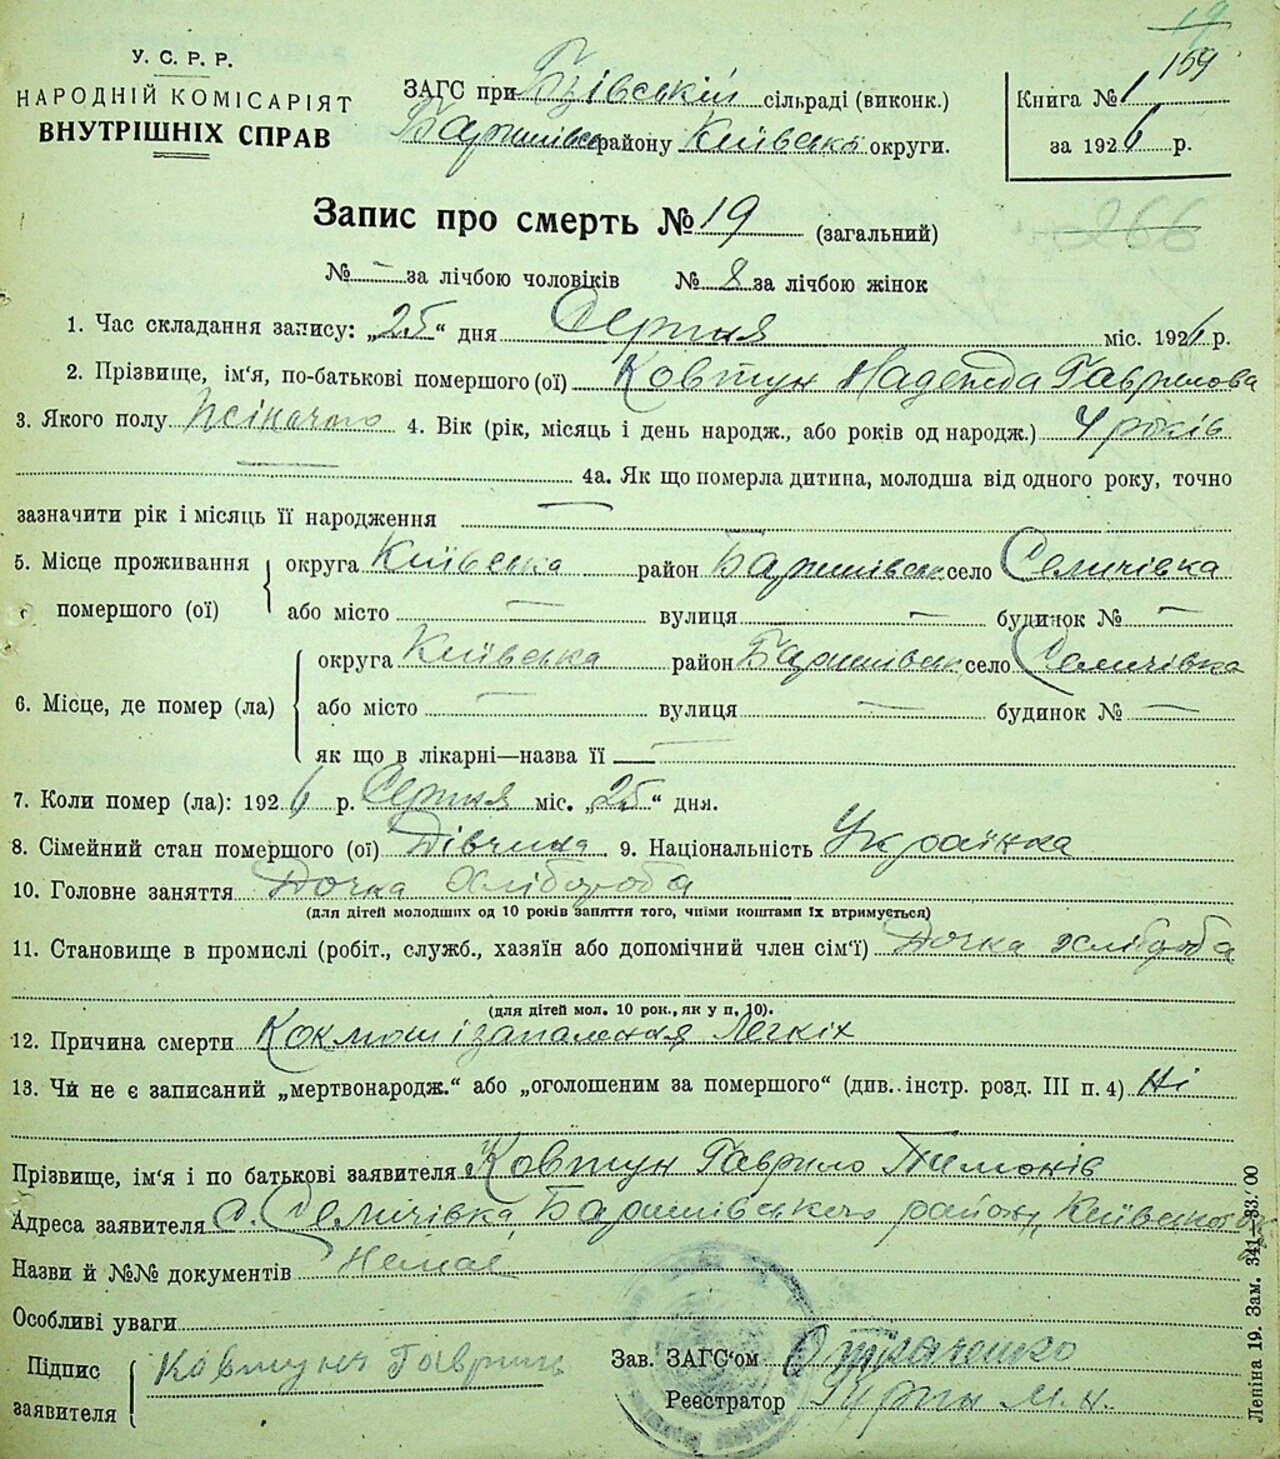 19
159
У. С. Р. Р.
НАРОДНІЙ КОМІСАРІЯТ
ВНУТРІШНІХ СПРАВ
ЗАГС при Бзівській сільраді (виконк.)
Баришівськ району Київської округи.
Книга № 1
за 1926 р.
Запис про смерть № 19 (загальний)
266
№ — за лічбою чоловіків № 8 за лічбою жінок
1. Час складання запису: „25“ дня Серпня міс. 1926 р.
2. Прізвище, ім'я, по-батькові помершого (ої) Ковтун Надежда Гаврилова
3. Якого полу жіночого 4. Вік (рік, місяць і день народж., або років од народж.) 4 років
4а. Як що померла дитина, молодша від одного року, точно
зазначити рік і місяць її народження —
5. Місце проживання помершого (ої) округа Київська район Баришівськ село Селичівка
або місто — вулиця — будинок № —
6. Місце, де помер (ла) округа Київська район Баришівськ село Селичівка
або місто — вулиця — будинок № —
як що в лікарні—назва її —
7. Коли помер (ла): 1926 р. Серпня міс. „25“ дня.
8. Сімейний стан помершого (ої) Дівчина 9. Національність Українка
10. Головне заняття Дочка Хлібороба
(для дітей молодших од 10 років заняття того, чиїми коштами їх втримується)
11. Становище в промислі (робіт., служб., хазяїн або допомічний член сім'ї) Дочка хлібороба
(для дітей мол. 10 рок., як у п. 10).
12. Причина смерти Коклюш і запалення Легкіх
13. Чи не є записаний „мертвонародж.“ або „оголошеним за помершого“ (див. інстр. розд. III п. 4) Ні
Прізвище, ім'я і по батькові заявителя Ковтун Гаврило Тимохів
Адреса заявителя с. Селичівка, Баришівського району, Київської ок
Назви й №№ документів Немає
Особливі уваги
Підпис заявителя Ковтун Гаврил
Зав. ЗАГС'ом О Ткаченко
Реєстратор М. Н.
Лепіна 19. Зам. 341—33.'00